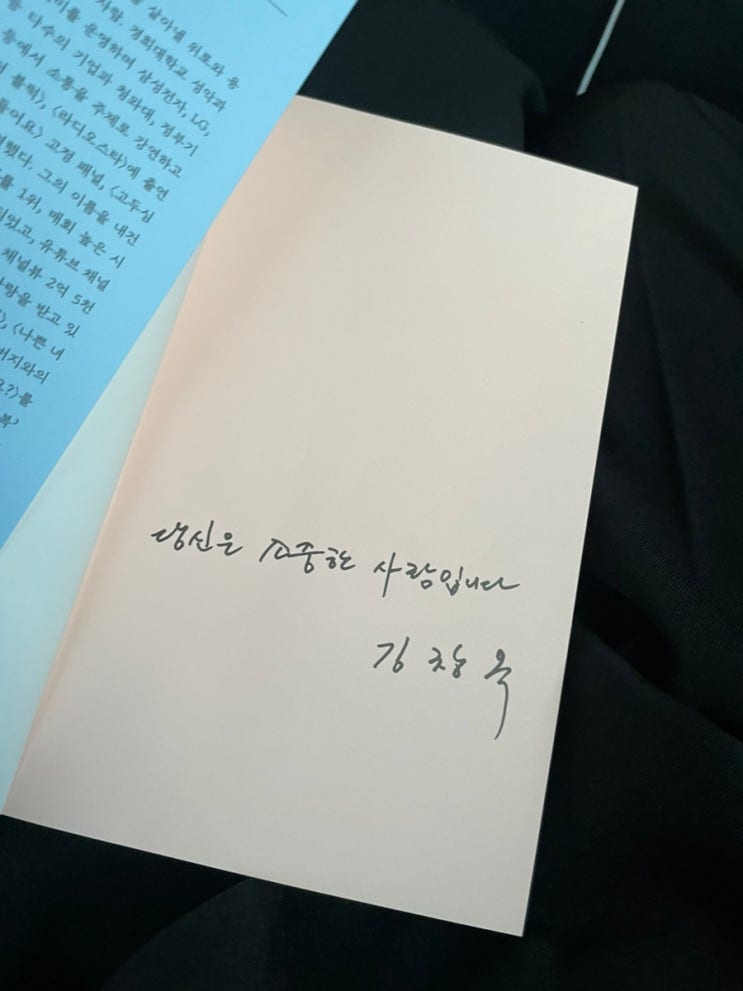 살아낼 위로와 용
사람. 경희대학교 성악과
운영하며 삼성전자, LG,
다수의 기업과 청와대, 정부기
등에서 소통을 주제로 강연하고
<라디오스타>에 출연
고정 패널, <고두심
했다. 그의 이름을 내건
1위, 매회 높은 시
되었고, 유튜브 채널
채널뷰 2억 5천
사랑을 받고 있
<나쁜 내
버지와의
요?>를
복'
당신은 소중한 사람입니다
김창옥